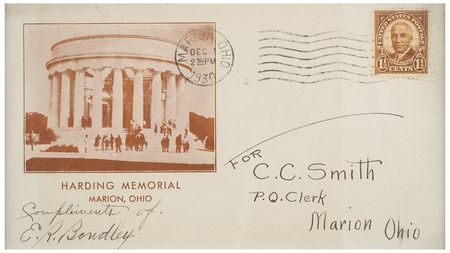 MARION, OHIO
DEC 1
2 30 PM
1930
UNITED STATES POSTAGE
1½ CENTS 1½
HARDING MEMORIAL
MARION, OHIO
Compliments of.
E.R. Bondley.
FOR
C.C. Smith
P.O. Clerk
Marion Ohio